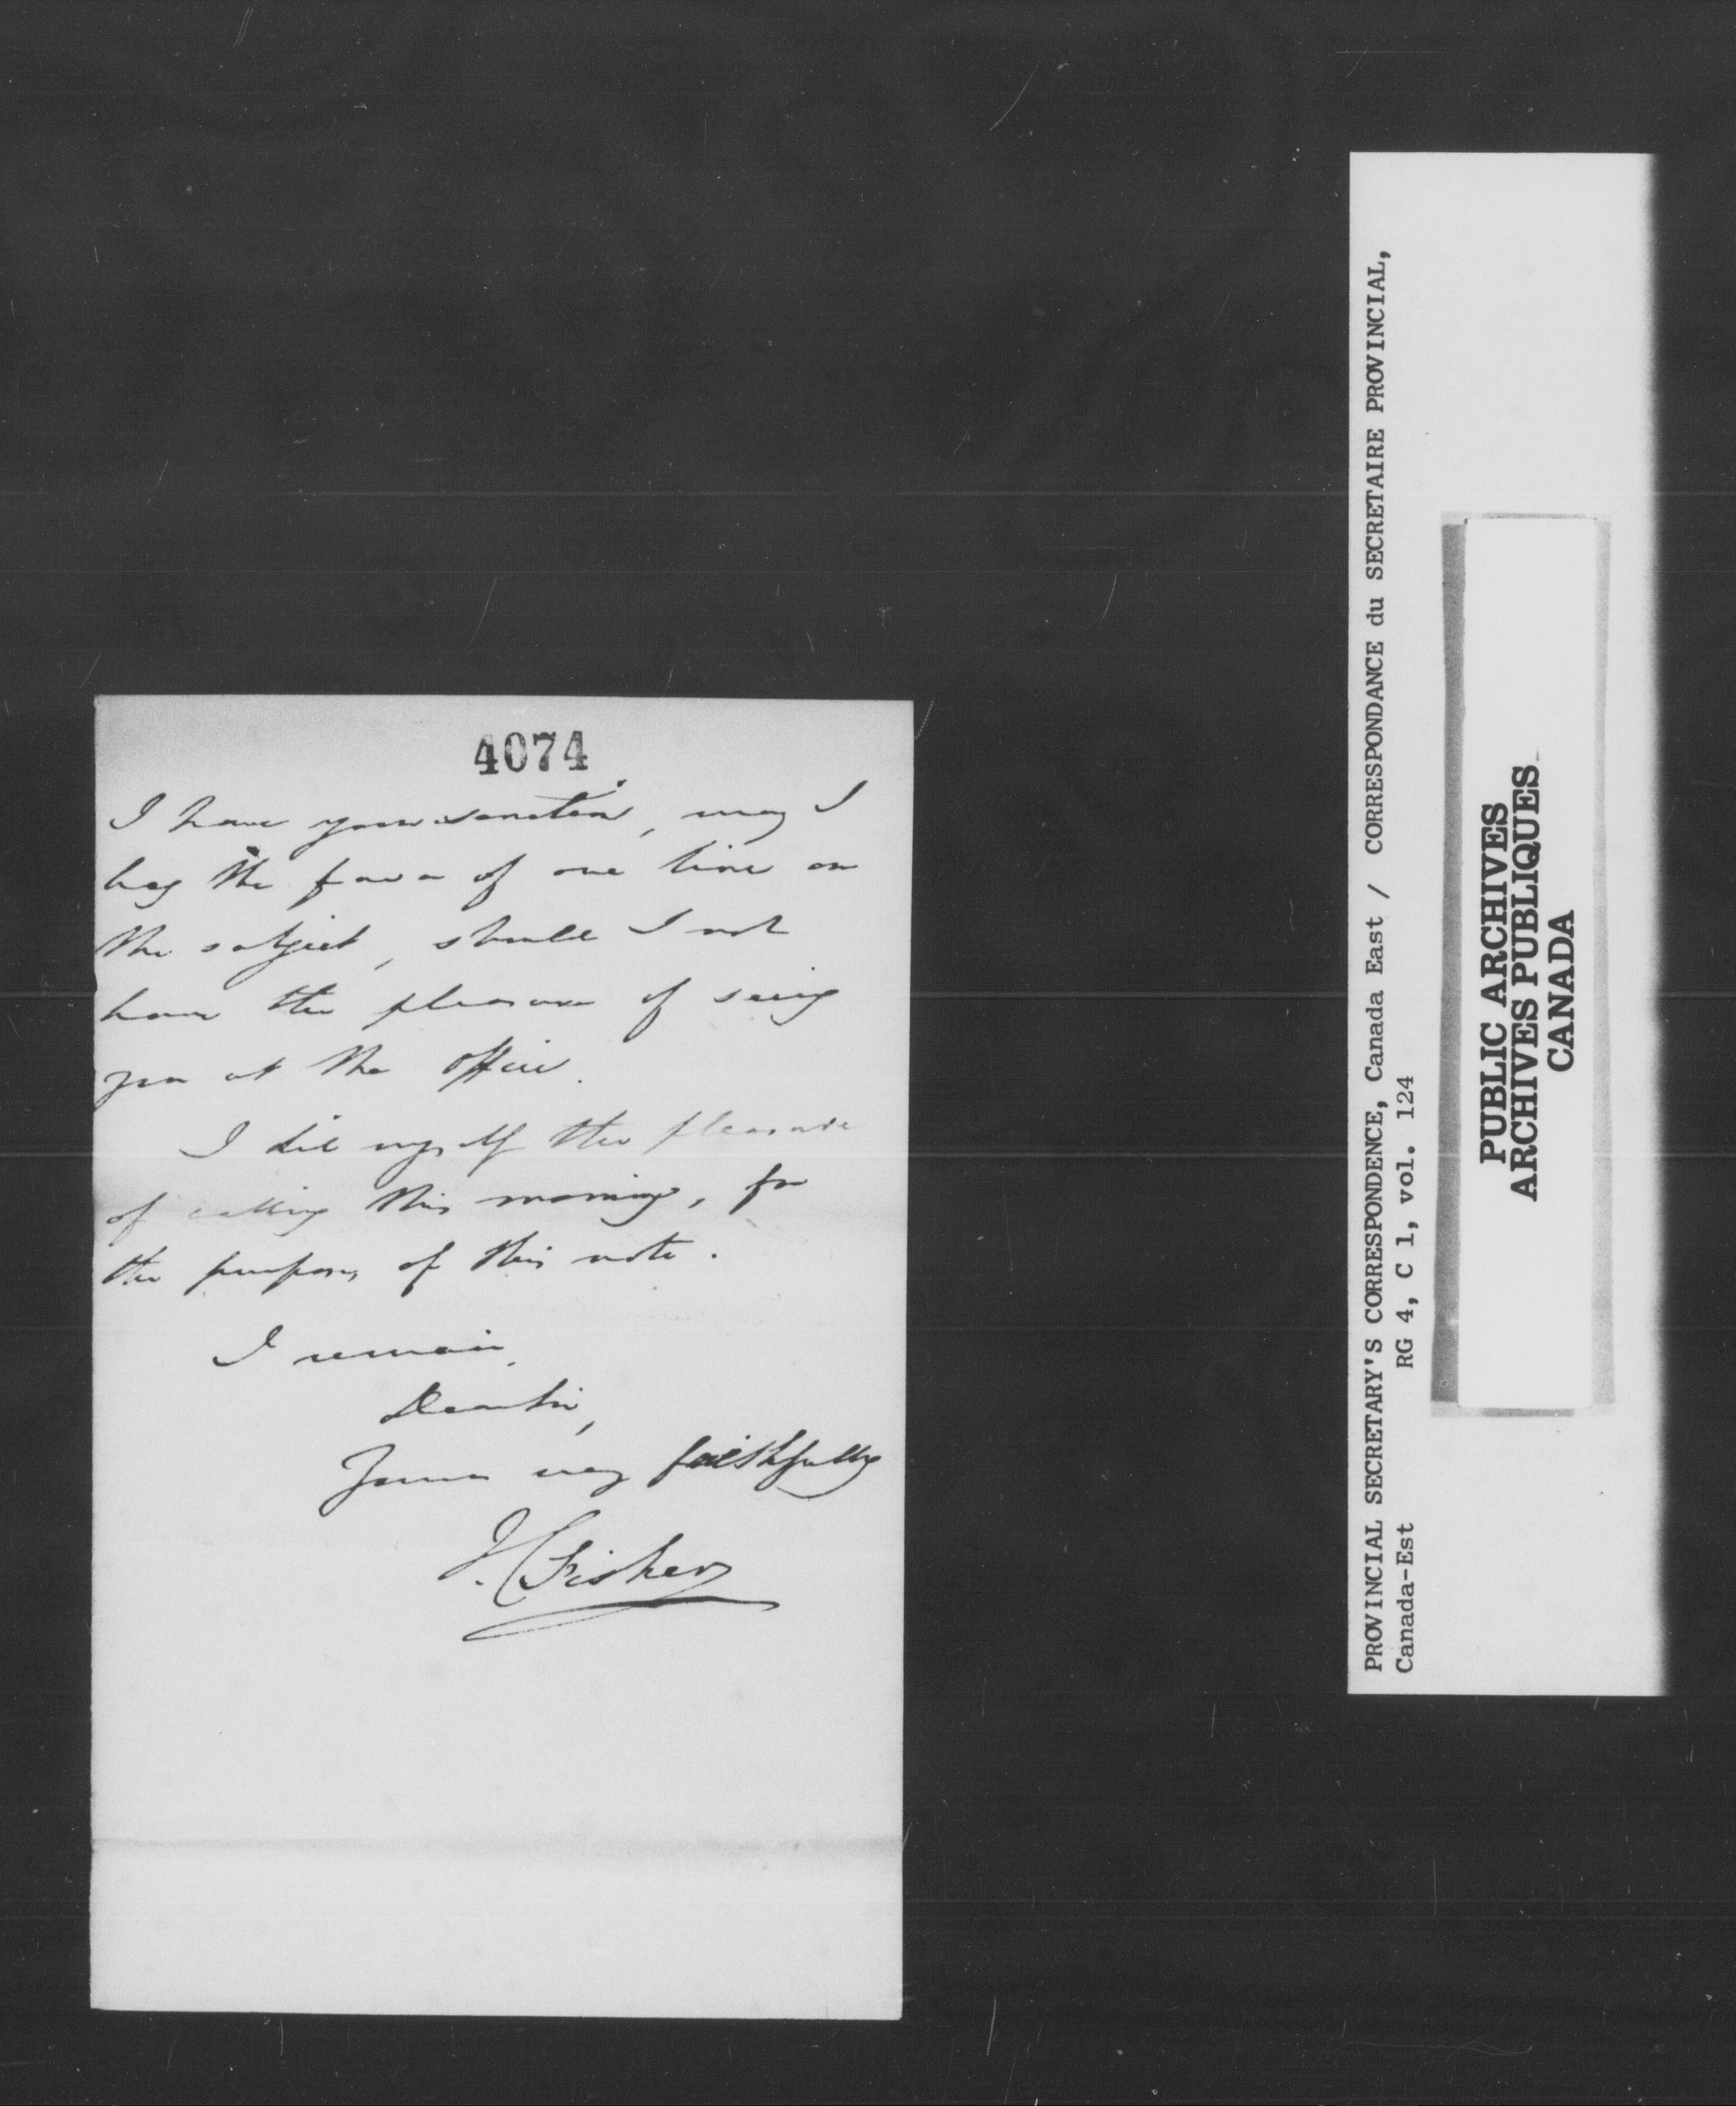 4074
I have your sanction, may I
beg the favor of one line on
the subject, should I not
have the pleasure of seeing
you at the office.
I did myself the pleasure
of calling this morning, for
the purpose of this note.
I remain,
Dear Sir,
Yours very faithfully
J. C. Fisher
PROVINCIAL SECRETARY'S CORRESPONDENCE, Canada East / CORRESPONDANCE du SECRETAIRE PROVINCIAL,
Canada-Est RG 4, C 1, vol. 124
PUBLIC ARCHIVES
ARCHIVES PUBLIQUES
CANADA